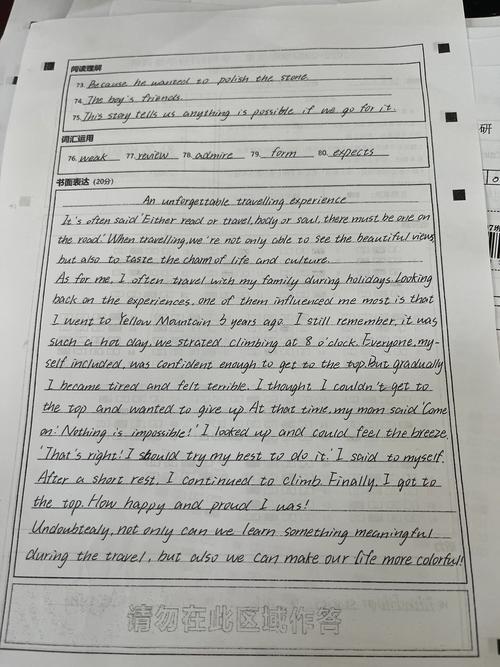 阅读理解
73. Because he wanted to polish the stone.
74. The boy's friends.
75. This story tells us anything is possible if we go for it.
词汇运用
76. weak 77. review 78. admire 79. form 80. expects
书面表达 (20分)
An unforgettable travelling experience
It's often said 'Either read or travel, body or soul, there must be one on
the road.' When travelling, we're not only able to see the beautiful views
but also to taste the charm of life and culture.
As for me, I often travel with my family during holidays. Looking
back on the experiences, one of them influenced me most is that
I went to Yellow Mountain 5 years ago. I still remember, it was
such a hot day, we strated climbing at 8 o'clock. Everyone, my-
self included, was confident enough to get to the top. But gradually
I became tired and felt terrible. I thought I couldn't get to
the top and wanted to give up. At that time, my mom said 'Come
on! Nothing is impossible!' I looked up and could feel the breeze.
'That's right! I should try my best to do it.' I said to myself.
After a short rest, I continued to climb. Finally, I got to
the top. How happy and proud I was!
Undoubtealy, not only can we learn something meaningful
during the travel, but also we can make our life more colorful!
请勿在此区域作答
研